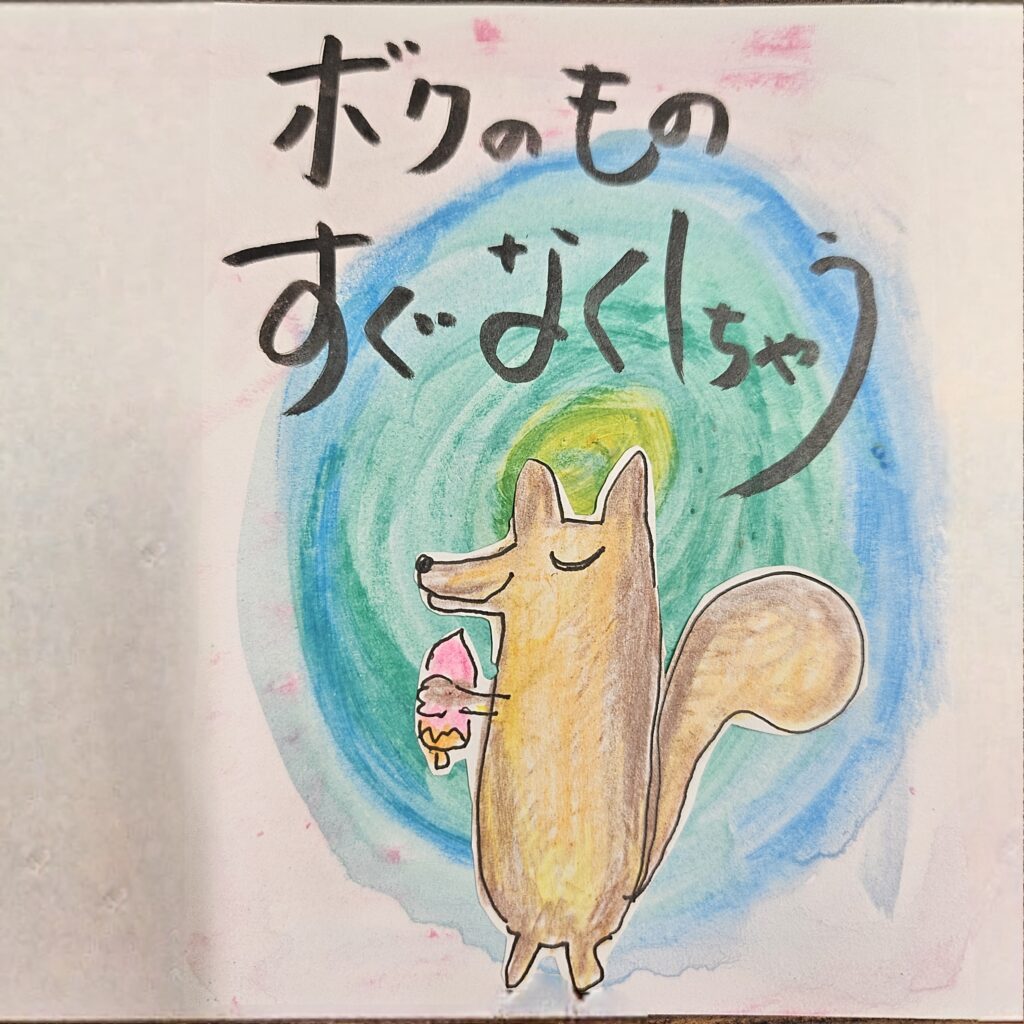 ボクのもの
すぐなくしちゃう